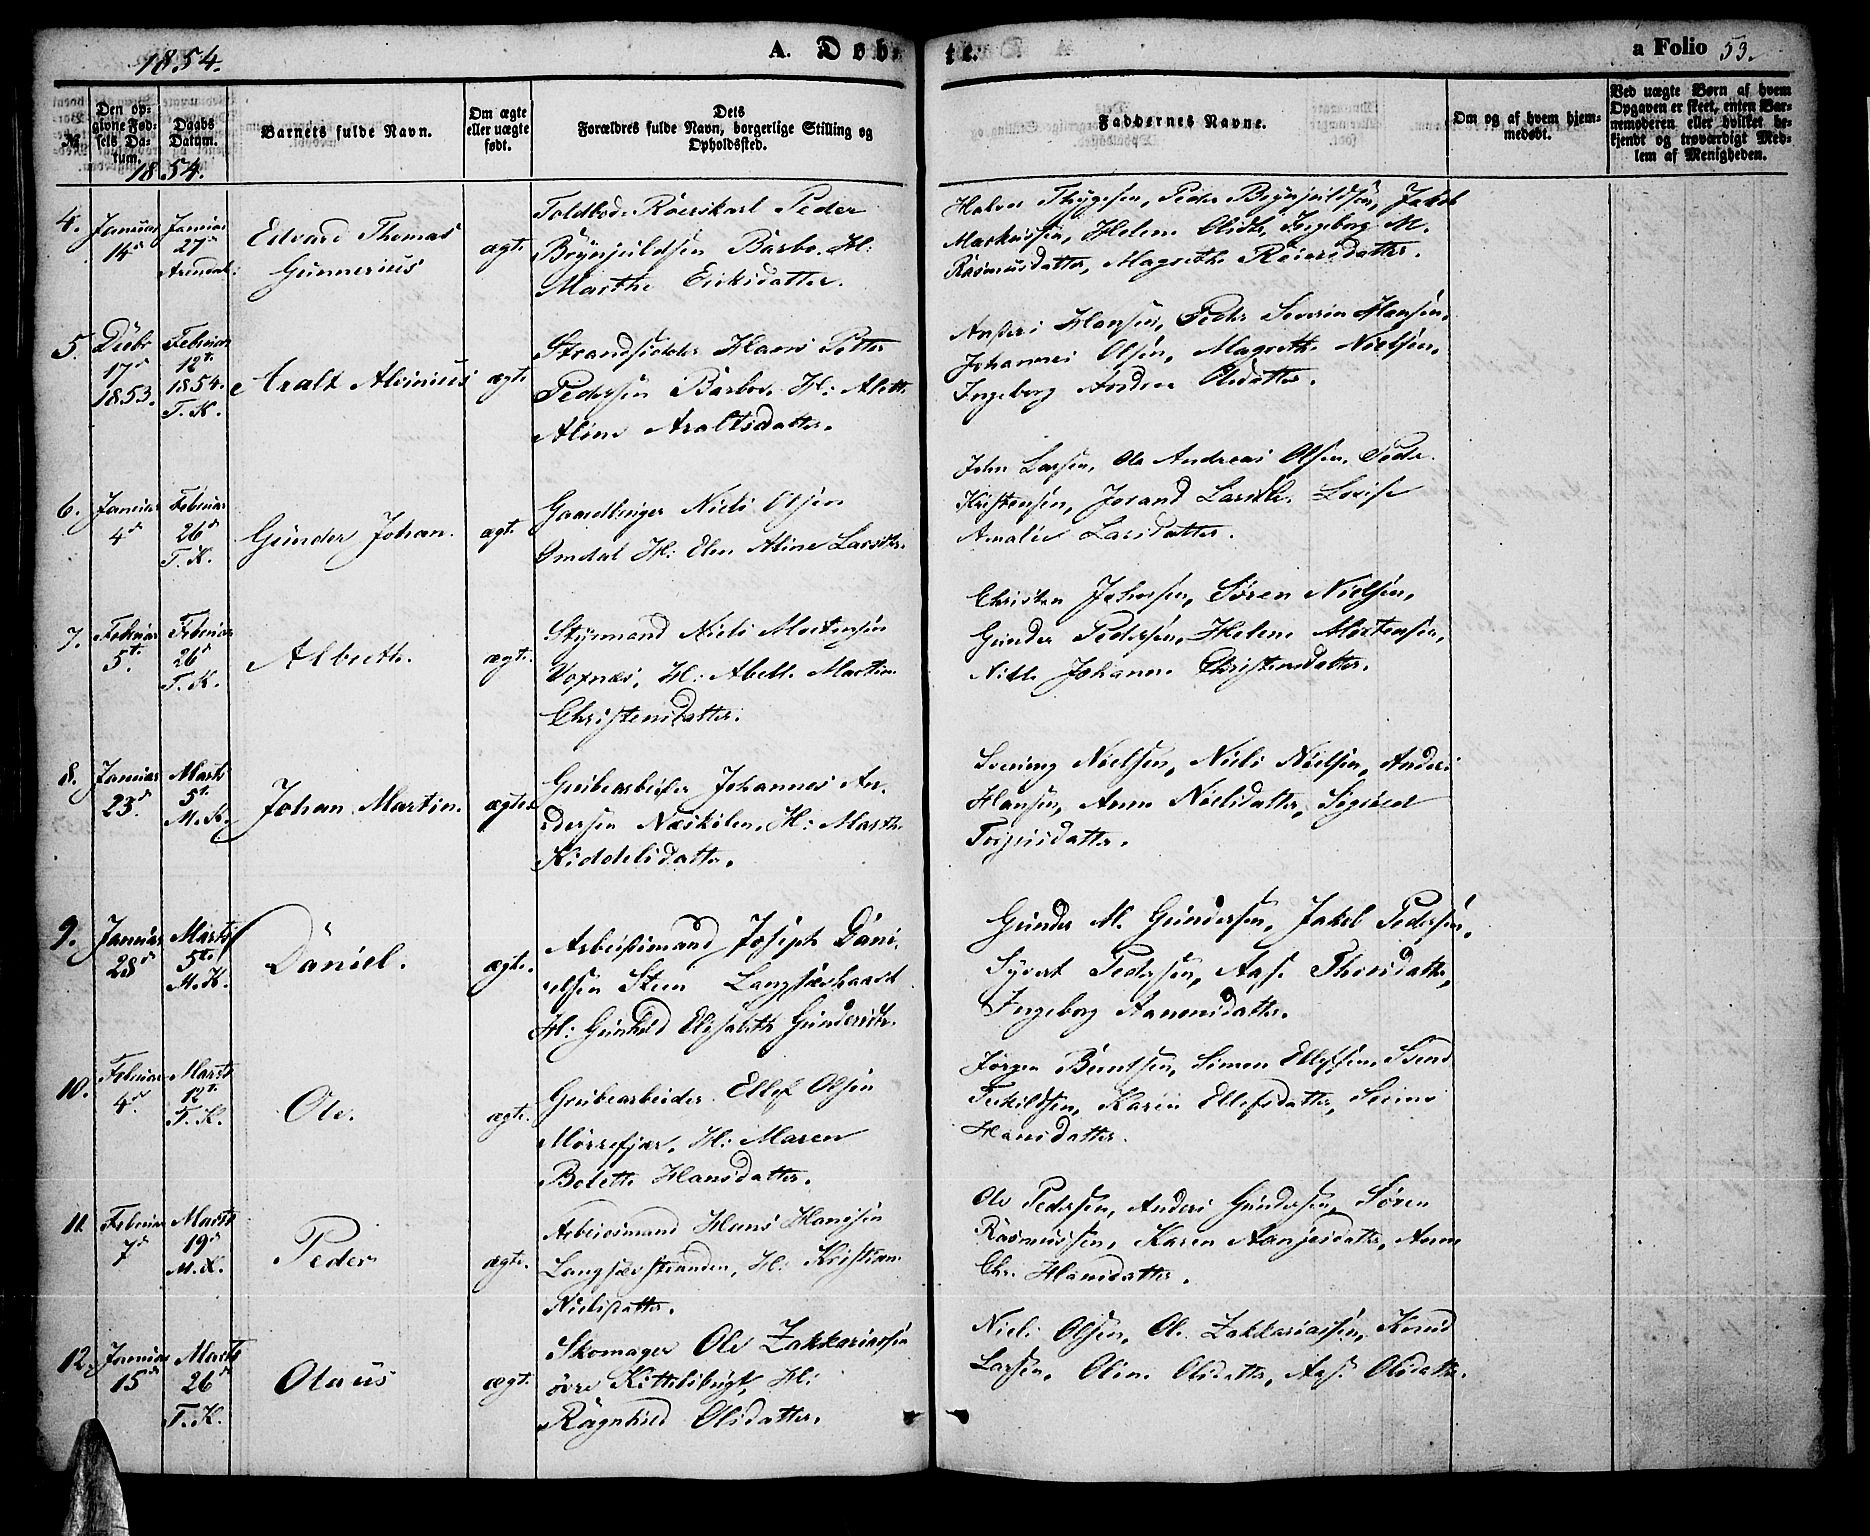 1854.
A. Døb-
te.
a Folio 53.
№
Den op-
givne Fød-
sels Da-
tum.
Daabs
Datum.
Barnets fulde Navn.
Om ægte
eller uægte
født.
Dets
Forældres fulde Navn, borgerlige Stilling og
Opholdssted.
Faddernes Navne.
Om og af hvem hjem-
medøbt.
Ved uægte Børn af hvem
Opgaven er skeet, enten Bar-
nemoderen eller hvilket be-
kjendt og troværdigt Med-
lem af Menigheden.
1854.
4.
Januar
14de
Januar
27de
Arendal.
Edvard Thomas
Gunnerius
ægte
Toldbod-Roerskarl Peder
Brynjuldsen Barbo. H:
Marthe Eriksdatter.
Halvor Thygesen, Peder Brynjuldsen, Jakob
Markussen, Helene Olsdtr, Ingeborg M.
Rasmusdatter, Magrethe Reiersdatter.
5.
Decbr
17de
1853.
Februar
12te
1854.
T. K.
Aralt Alvinius
ægte
Strandsidder Hans Petter
Pedersen Barboe. H: Alette
Aline Araltsdatter.
Anders Hansen, Peder Severin Hansen,
Johannes Olsen, Magrethe Nielsen,
Ingeborg Andrea Olsdatter.
6.
Januar
4de
Februar
26de
T. K.
Gunder Johan.
ægte.
Gaardbruger Niels Olsen
Omdal H: Elen Aline Larsdtr.
John Larsen, Ole Andreas Olsen, Peder
Kristensen, Jorand Larsdtr. Lovise
Amalie Larsdatter.
7.
Februar
5te
Februar
26de
T. K.
Alberth.
ægte.
Styrmand Niels Mortensen
Voxnæs, H: Abelle Martine
Christensdatter.
Christen Johnsen, Søren Nielsen,
Gunder Pedersen, Helene Mortensen,
Johanne Christensdatter.
8.
Januar
23de
Marts
5te
M. K.
Johan Martin.
ægte
Grubearbeider Johannes An-
dersen Næskilen, H: Marthe
Kiddelsdatter.
Svenung Nielsen, Niels Nielsen, Anders
Hansen, Anne Nielsdatter, Sigrid
Torjusdatter.
9.
Januar
28de
Marts
5te
M. K.
Daniel.
ægte.
Arbeidsmand Joseph Dani-
elsen Steen Langsæehaard
H: Gunhild Elisabeth Gundersdtr.
Gunder M. Gundersen, Jakob Pedersen,
Syvert Pedersen, Aase Thorsdatter,
Ingeborg Aanonsdatter.
10.
Februar
4de
Marts
12te
T. K.
Ole.
ægte.
Grubearbeider Ellef Olsen
Mørefjær, H: Maren
Bolette Hansdatter.
Jørgen Berntsen, Simon Ellefsen, Svend
Terkildsen, Karen Ellefsdatter,
Hansdatter.
11.
Februar
7de
Marts
19de
M. K.
Peder
ægte.
Arbeidsmand Hans Hansen
Langsæestranden, H: Kristiane
Nielsdatter.
Ole Pedersen, Anders Gundersen, Søren
Rasmussen, Karen Aanjersdatter, Anne
Chr. Hansdatter.
12.
Januar
15de
Marts
26de
T. K.
Olaus
ægte.
Skomager Ole Zakkariassen
øvre Kittelsbugt, H:
Ragnhild Olsdatter.
Niels Olsen, Ole Zakkariassen, Knud
Larsen, Oline Olsdatter, Aase Olsdatter.